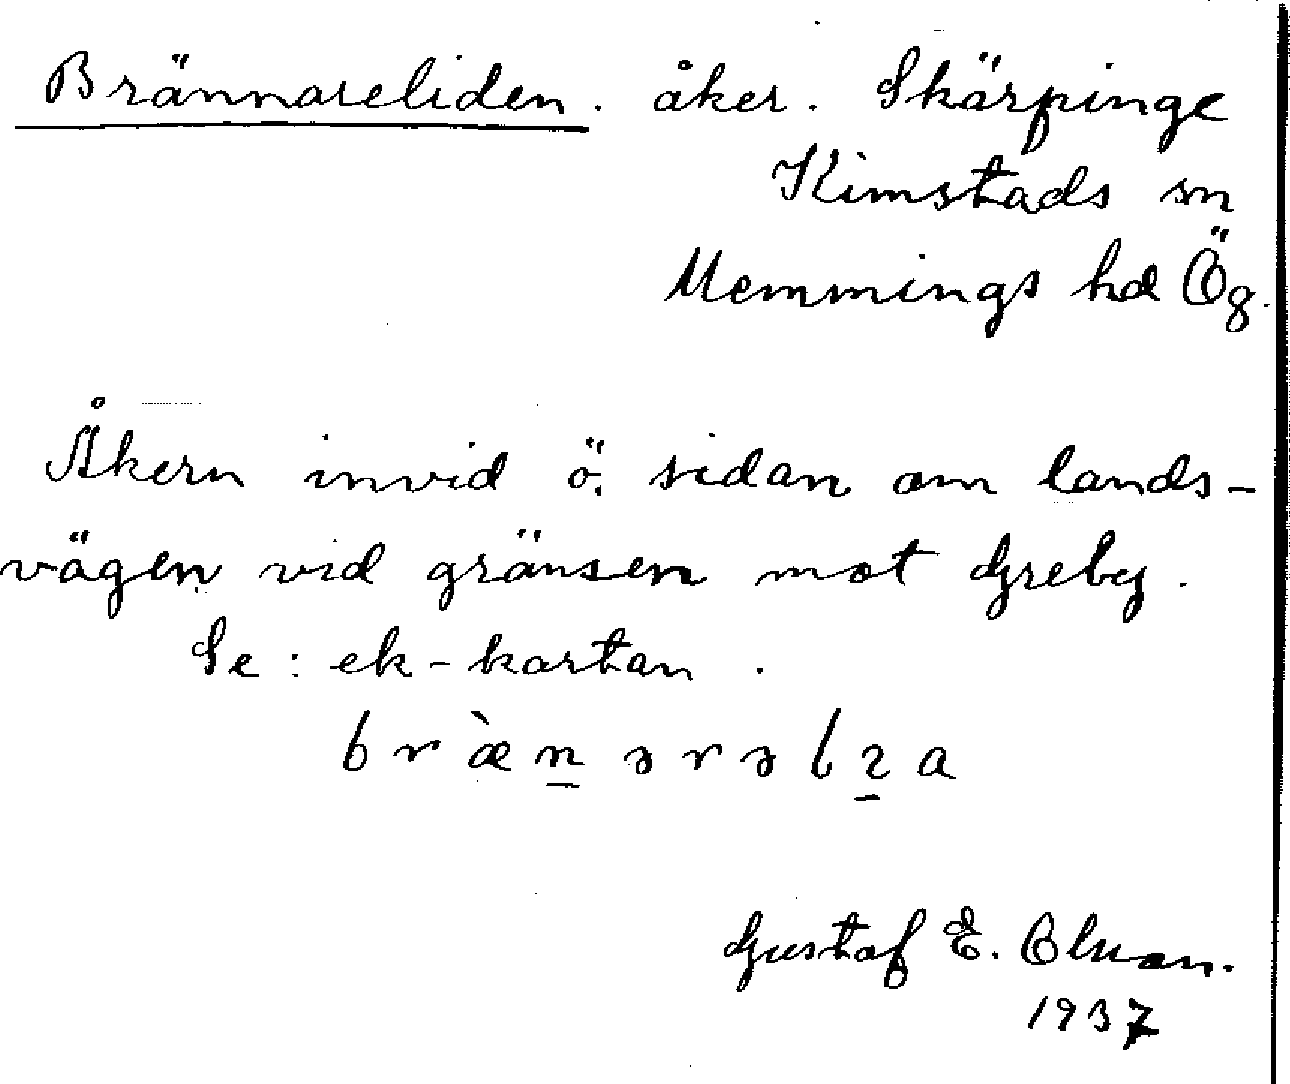 Brännareliden. åker. Skärpinge
Kimstads sn
Memmings hd Ög.
Åkern invid ö. sidan om lands-
vägen vid gränsen mot Greby.
Se: ek-kartan.
Gustaf E. Olsson.
1937